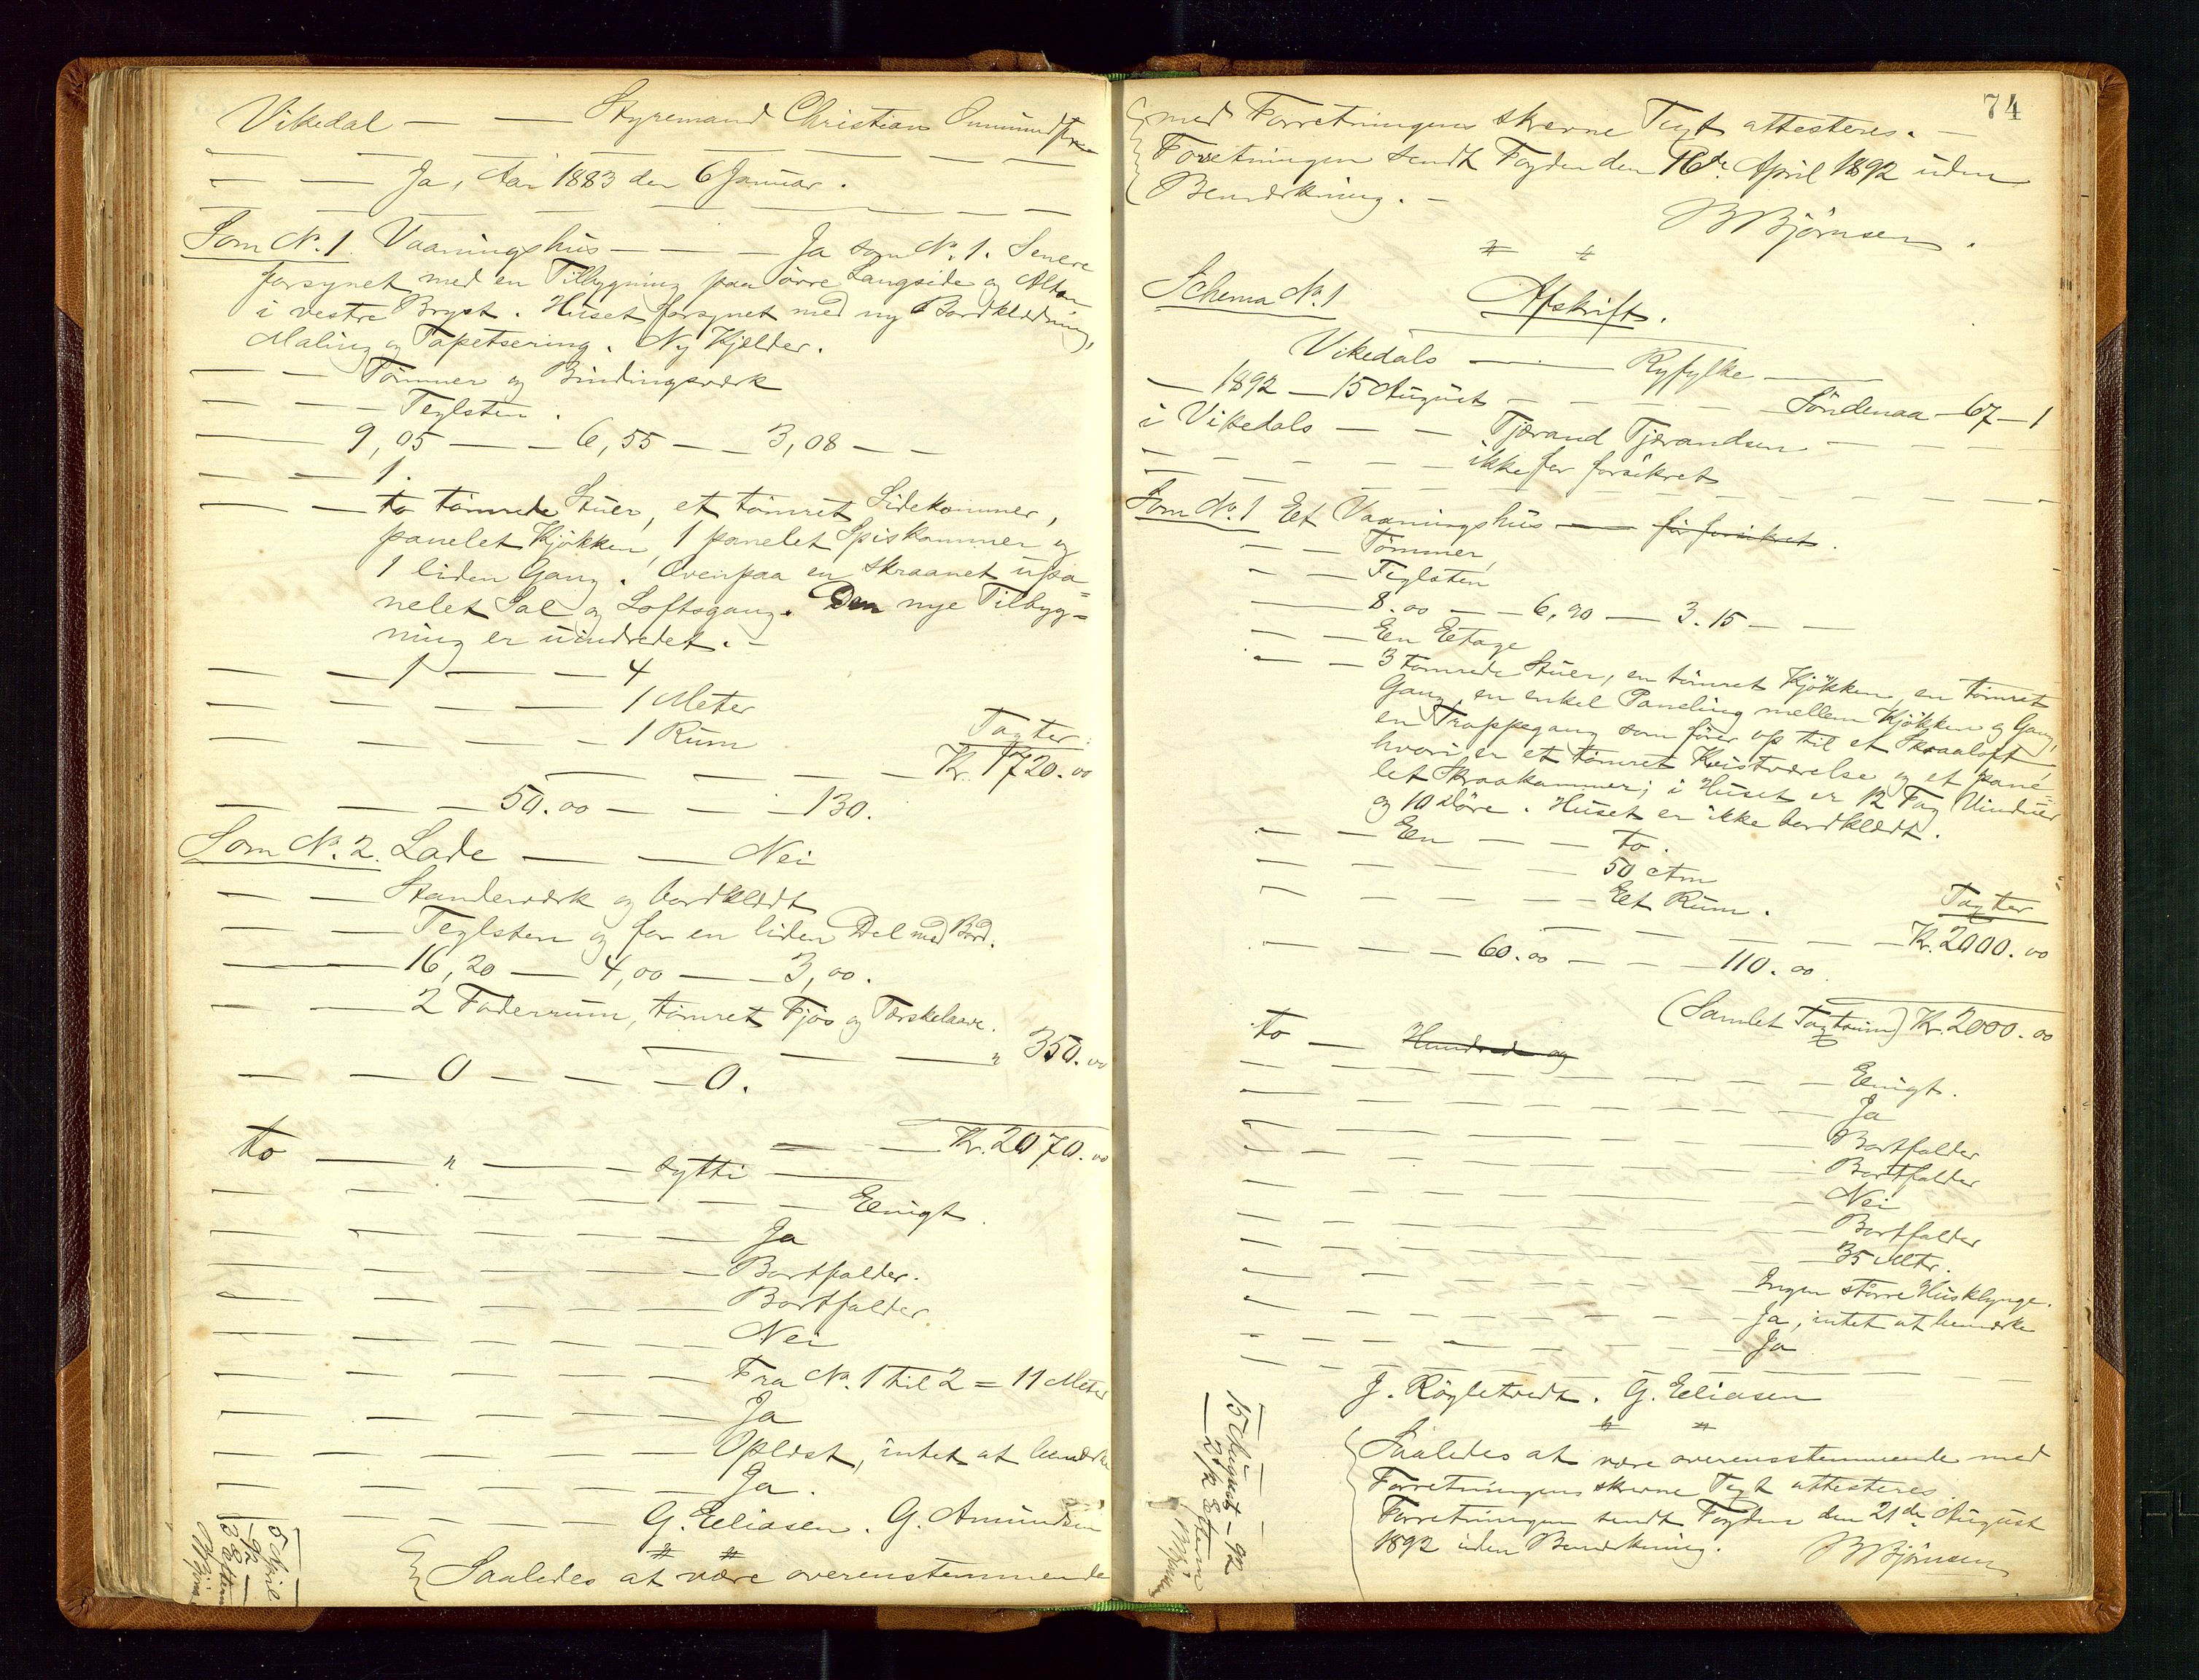 Vikedal — — Styremand Christian Ommundsen
— — — Ja, Aar 1883 den 6 Januar.
Som No. 1. Vaaningshus — — — Ja som No. 1. Senere
forsynet med en Tilbygning paa övre Langside og Altan
i vestre Bryst. Huset forsynet med ny Bordklædning,
Maling og Tapetsering. Ny Kjelder.
— — Tömmer og Bindingsværk
— — — Teglsten.
— — 9,05 — — 6,55 — — 3,08 — —
— — 1.
— — to tömrede Stuer, et tömret Sidekammer,
panelet Kjökken, 1 panelet Spiskammer og
1 liden Gang. Ovenpaa en skraanet upa=
nelet Sal og Loftsgang. Den nye Tilbyg=
ning er uindredet. —
— — 1 — — 4
— — — — 1 Meter
— — — — 1 Rum
Taxter:
— — — — Kr. 1720.00
— — — 50.00 — — — 130.
Som No. 2. Lade — — — Nei
— — Standerværk og bordklædt
— — Teglsten og for en liden Del med Bord.
— — 16,20 — 4,00 — — 3,00.
— — 2 Foderrum, tömret Fjös og Tærskelaave.
— — — " 350.00
— — 0 — — — 0.
— — — Kr. 2070.00
to — " — — sytti —
— — — — — Eenigt.
— — — — — Ja
— — — — — Bortfalder.
— — — — — Bortfalder
— — — — — Nei
— — — — — Fra No. 1 til 2 = 11 Meter
— — — — — Ja
— — — — — Oplæst, intet at bemærke
— — — — — Ja.
— — — — G. Eeliasen. G. Amundsen
Saaledes at være overenstemmende
5 April
— 92 —
74
med Forretningens skrevne Text attesteres. —
Forretningen sendt Fogden den 16de April 1892 uden
Bemærkning. —
B Björnsen.
Schema No. 1 Afskrift.
Vikedals — — Ryfylke —
— 1892 — 15 August — — — — Söndenaa — 67 — 1
i Vikedals — — Tjærand Tjærandsen — — —
— — — — — ikke för forsikret
Som No. 1 Eet Vaaningshus — för forsikret.
— — Tömmer
— — Teglsten
— — 8.00 — — 6,90 — 3.15 — —
— — Een Etage
— — 3 tömrede Stuer, en tömret Kjökken, en tömret
Gang, en enkel Paneling mellem Kjökken og Gang,
en Trappegang som förer op til et Skraaloft,
hvori er et tömret Kvistværelse og et pane=
let Skraakammer; i Huset er 12 Fag Vinduer
og 10 Döre. Huset er ikke bordklædt.
— — Een — — — to.
— — — — — 50 Ctm
— — — — — Eet Rum.
Taxter
— — — — Kr. 2000.00
— — — 60.00 — — — 110.00
(Samlet Taxtsum) Kr. 2000.00
to — Hundrede og
— — — — — Eenigt.
— — — — — Ja
— — — — — Bortfalder
— — — — — Bortfalder
— — — — — Nei
— — — — — Bortfalder
— — — — — 35 Mtr.
— — — — — Ingen större Husklynge.
— — — — — Ja, intet at bemærke
— — — — — Ja
J. Rögletvedt. G. Eeliasen
Saaledes at være overensstemmende med
Forretningens skrevne Text attesteres
Forretningen sendt Fogden den 21de August
1892 uden Bemærkning. B Björnsen
15 August — 92